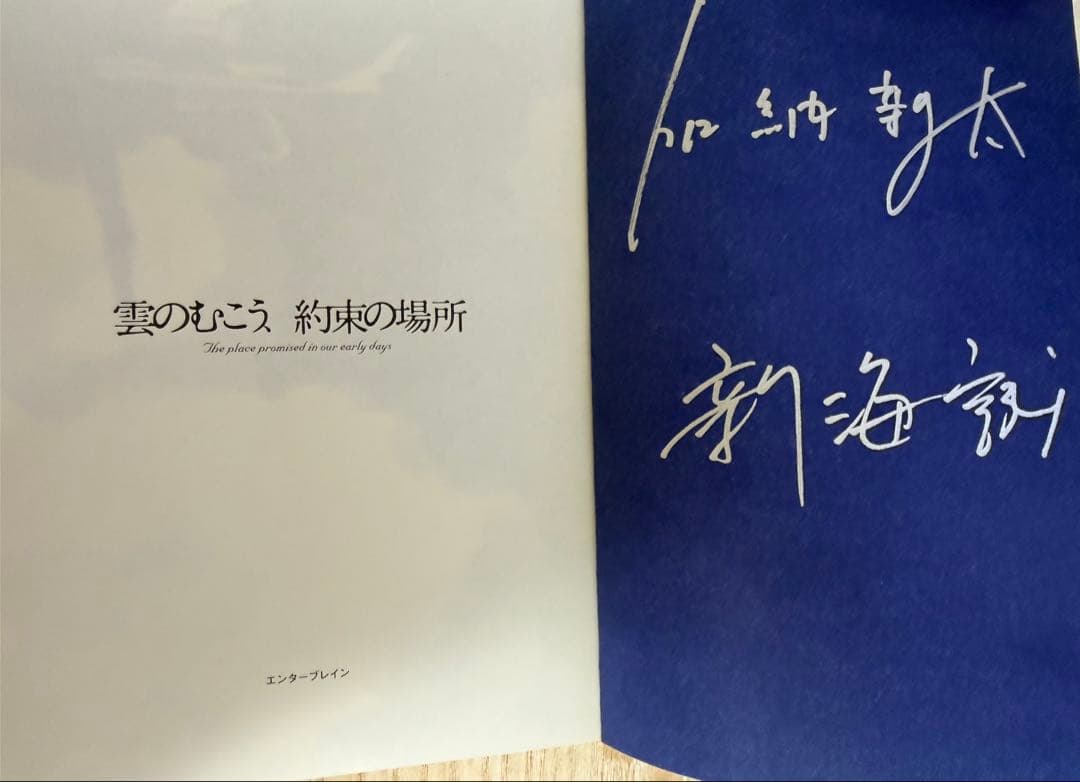 雲のむこう、約束の場所
The place promised in our early days
エンターブレイン
加納新太
新海誠